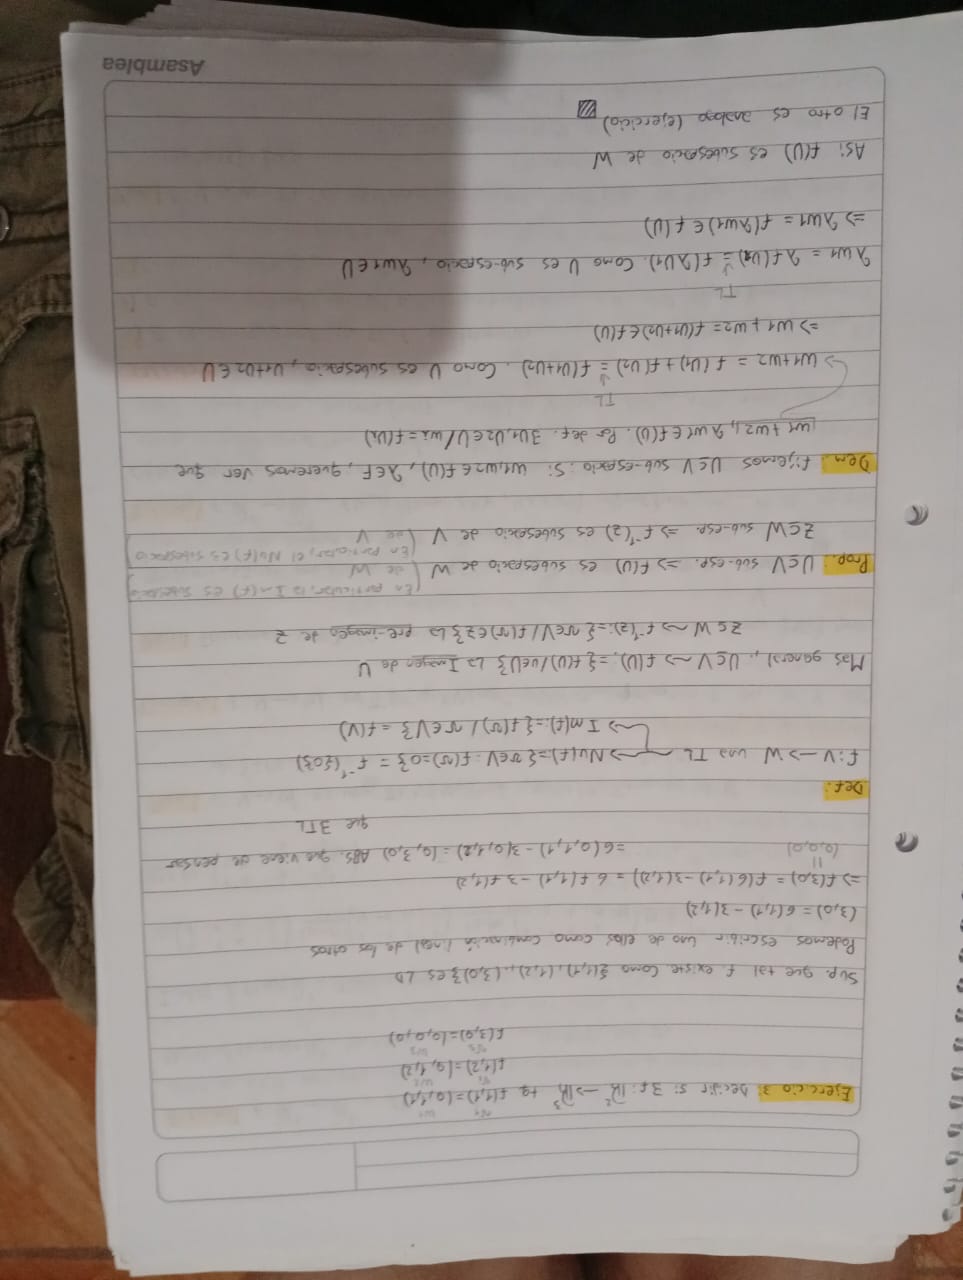 Ejercicio 3: Decidir si ∃ f: ℝ² → ℝ³ tq f(1,1) = (0,1,1)
v1 w1
f(1,2) = (0,1,2)
v2 w2
f(3,0) = (0,0,0)
v3 w3
Sup. que tal f existe. Como {(1,1), (1,2), (3,0)} es LD
Podemos escribir uno de ellos como combinación lineal de los otros
(3,0) = 6(1,1) - 3(1,2)
=> f(3,0) = f(6(1,1) - 3(1,2)) = 6 f(1,1) - 3 f(1,2)
(0,0,0) = 6(0,1,1) - 3(0,1,2) = (0,3,0) ABS. que viene de pensar
que ∃ TL
Def:
f: V → W una TL ⇝ Nu(f) := {v ∈ V : f(v) = 0} = f⁻¹({0})
⇝ Im(f) := {f(v) / v ∈ V} = f(V)
Mas general, U ⊆ V ⇝ f(U) := {f(u) / u ∈ U} la Imagen de U
Z ⊆ W ⇝ f⁻¹(Z) := {v ∈ V / f(v) ∈ Z} la pre-imagen de Z
Prop. U ⊆ V sub-esp. => f(U) es subespacio de W (En particular, la Im(f) es subespacio de W)
Z ⊆ W sub-esp. => f⁻¹(Z) es subespacio de V (En particular, el Nu(f) es subespacio de V)
Dem. Fijemos U ⊆ V sub-espacio: Si w1, w2 ∈ f(U), λ ∈ F, queremos ver que
w1 + w2, λw1 ∈ f(U). Por def. ∃ u1, u2 ∈ U / wi = f(ui)
TL
w1 + w2 = f(u1) + f(u2) = f(u1 + u2). Como U es subespacio, u1 + u2 ∈ U
=> w1 + w2 = f(u1 + u2) ∈ f(U)
TL
λw1 = λ f(u1) = f(λu1). Como U es sub-espacio, λu1 ∈ U
=> λw1 = f(λu1) ∈ f(U)
Asi f(U) es subespacio de W
El otro es analogo (ejercicio)
Asamblea